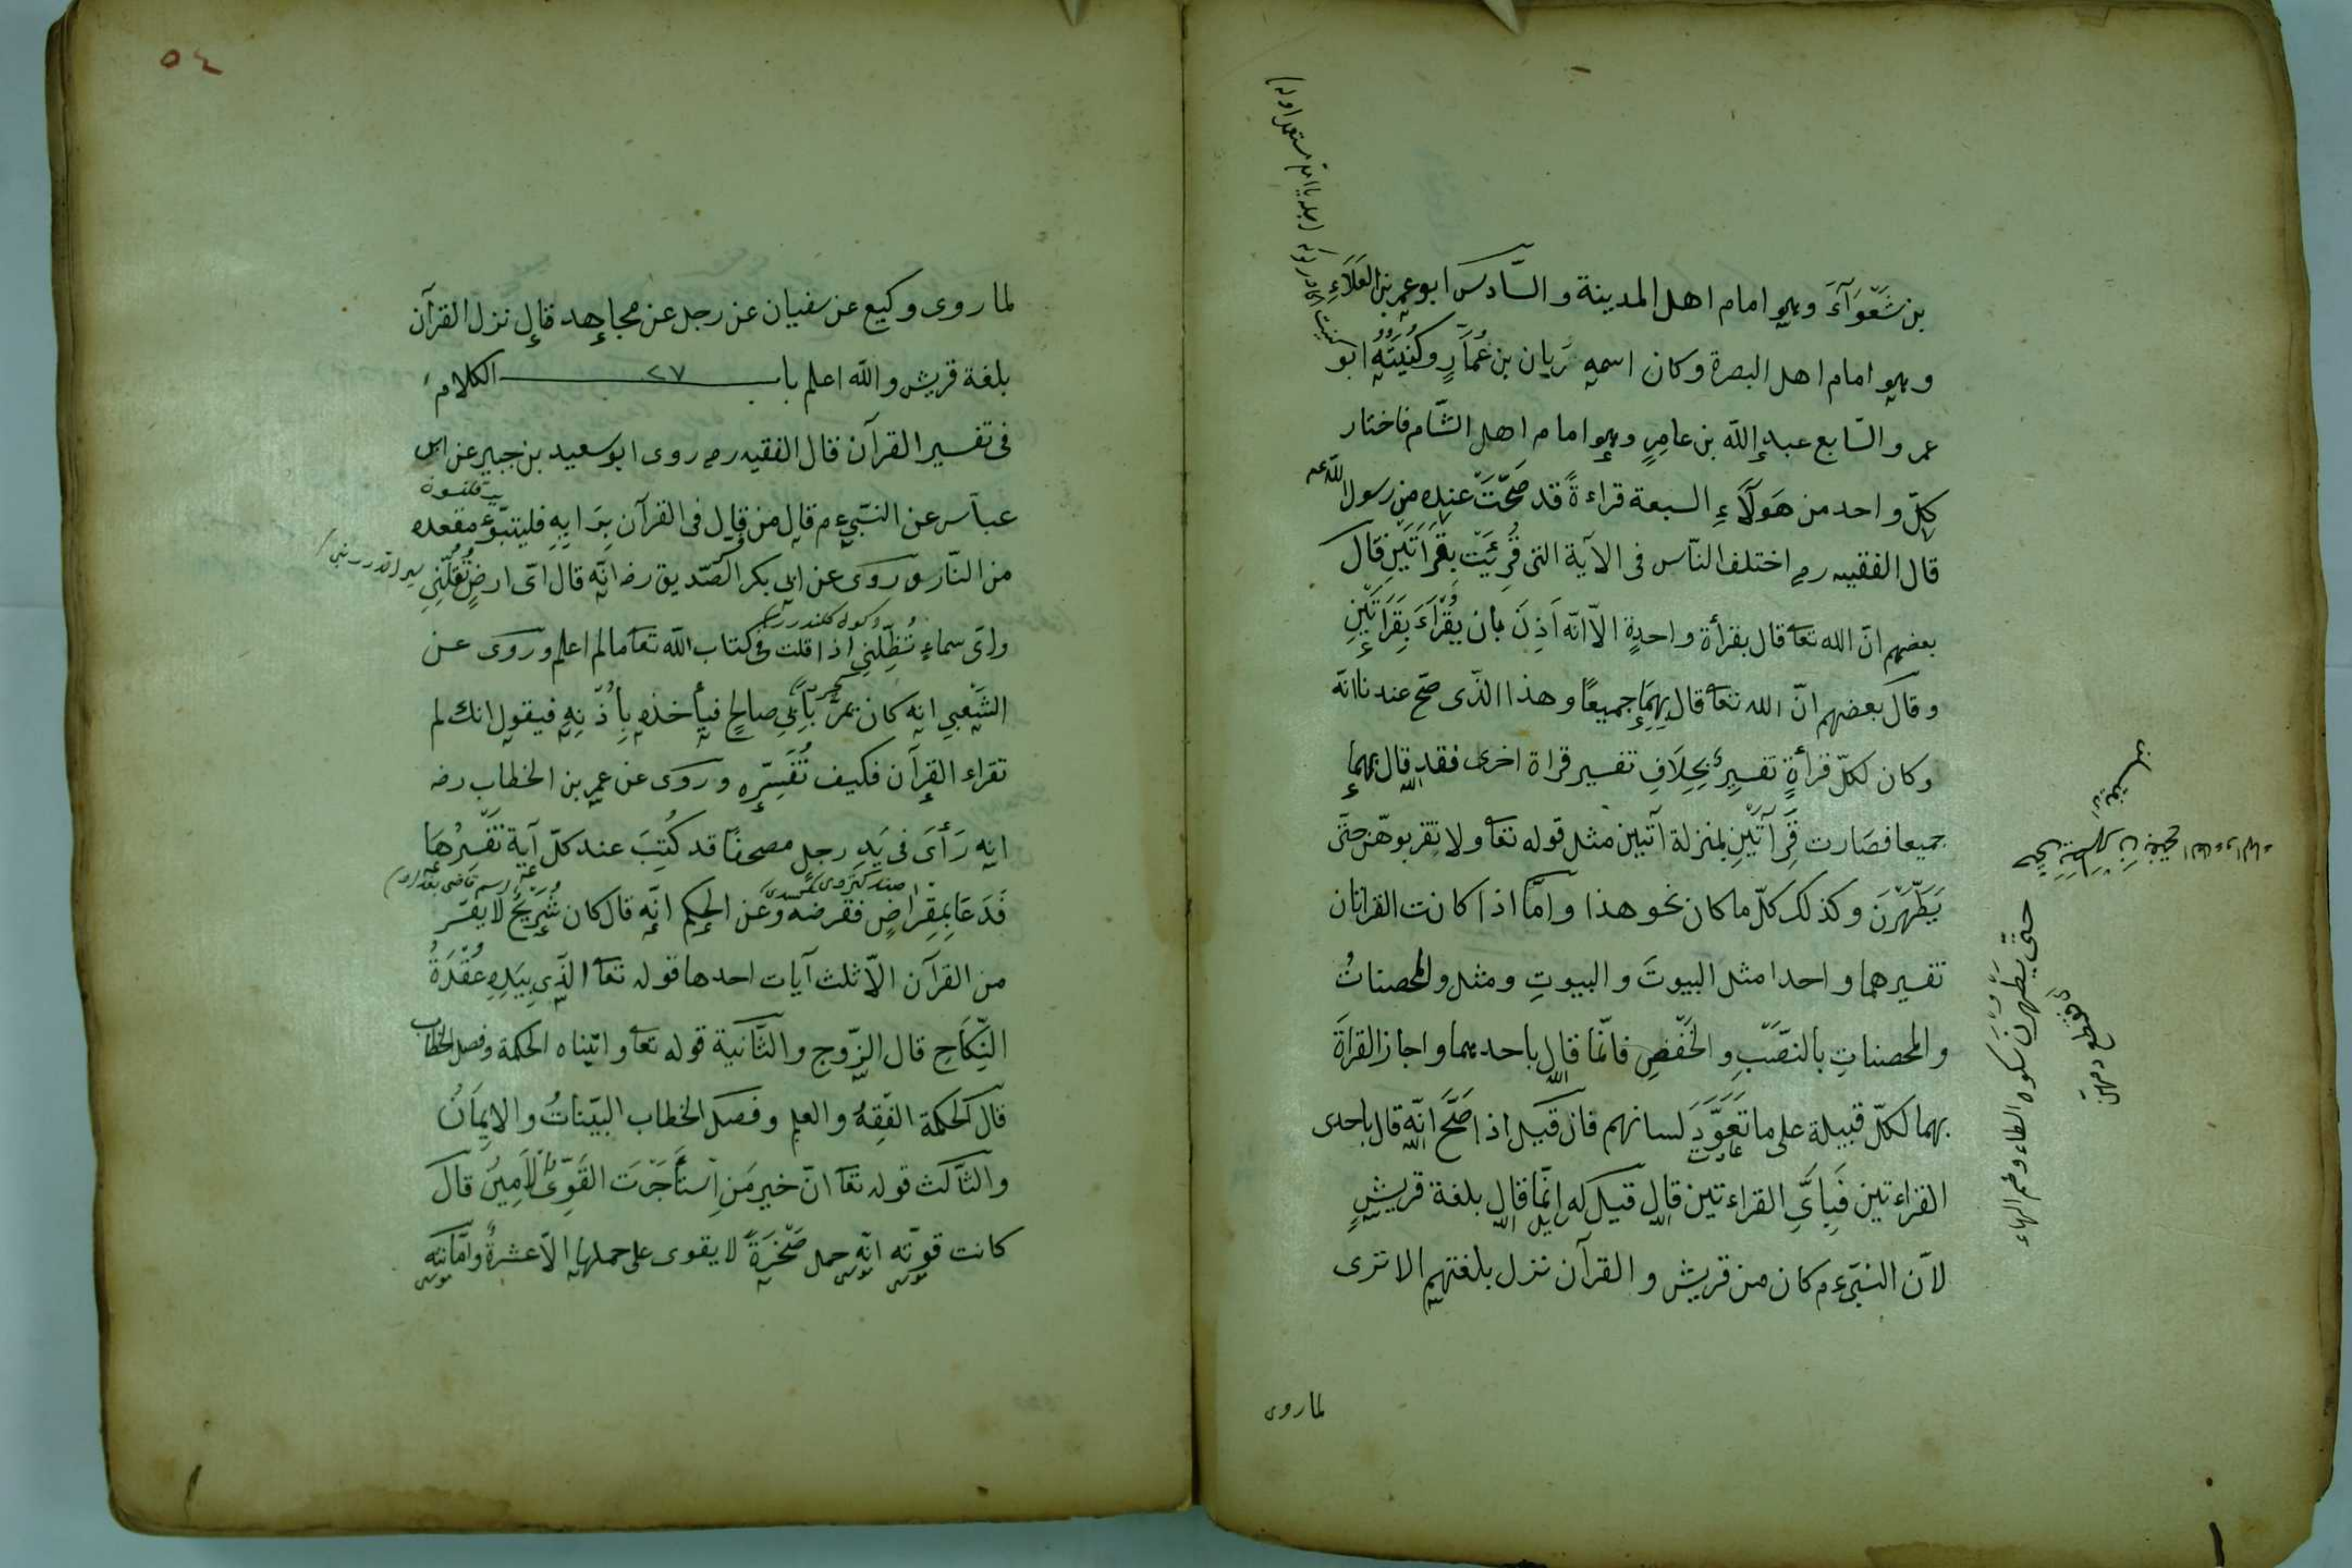 بن شَعْوَآءَ وهو امام اهل المدينة والسّادس ابو عمرو بن العَلَاءِ
وهو امام اهل البصرة وكان اسمه زَيان بن عُمَارٍ وكُنْيَتُهُ ابو
عمر والسّابع عبد الله بن عامِرٍ وهو امام اهل الشّام فاختار
كلّ واحد من هَولَاَءِ السبعة قراءةً قد صَحَّتْ عنده من رسول اللّه عم
قال الفقيه رح اختلف النّاس فى الآية التى قُرِئَتْ بِقَرَاتَيْنِ قال
بعضهم انّ الله تعا قال بقرأة واحدةٍ الّا انّه اَذِنَ بأن يُقْرَاءَ بِقَرَاتَيْنِ
وقال بعضهم انّ الله تعا قال بِهِمَا جميعًا وهذا الذّى صحّ عندنا انّه
وكان لكلّ قرأةٍ تفسيرٌ بِخِلَافِ تفسير قراة اخرى فقد قال بهما
جميعا فصَارت قَرَآتَيْنِ بمنزلة آتيين مثل قوله تعا ولا تقربوهّن حتّى
يَطْهُرْنَ وكذلك كلّ ما كان نحو هذا وامّا اذا كانت القراتان
تفسيرهما واحدا مثل البيوتَ والبيوتِ ومثل والمحصناتُ
والمحصناتِ بالنصْبِ والخَفْضِ فانّما قال باحدهما واجاز القراةَ
بهما لكلّ قبيلة على ما تَعَوَّدَ لسانهم فان قيل اذا صَحَّ انّه قال باحدى
القراءتين فَبِاَىِّ القراءتين قال قيل له انّما قال بلغة قريشٍ
لانّ النبّىءم كان من قريش والقرآن نزل بلغتهم الا ترى
لما روى
حتّى يَطْهُرْنَ بسكون الطاء وضم الهاء
٥٤
لما روى وكيع عن سفيان عن رجل عن مجاهد قال نزل القرآن
بلغة قريش واللّه اعلم باب ٢٧ الكلام
فى تفسير القرآن قال الفقيه رح روى ابو سعيد بن جبير عن ابن
عباس عن النبّىءم قال من قال فى القرآن بِرَايِهِ فليتبوّء مقعده
من النّار وروى عن ابى بكر الصّديق رضه انّه قال اىّ ارضٍ تُقِلُّنِى
واىّ سماءٍ تُظِلُّنِى اذا قلت فى كتاب اللّه تعا ما لم اعلم وروى عن
الشَعْبِى انه كان يَمُرُّ بِاَبِى صالحٍ فيأخذه بِاُذُنِهِ فيقول انك لم
تقراء القرآن فكيف تُفَسِّرُه وروى عن عمر بن الخطاب رضه
انه رَأَىَ فى يَدِ رجل مصحفًا قد كُتِبَ عند كلّ آية تَفْسِيرُهَا
فَدَعَا بِمِقْراضٍ فقرضه وعن الحكم انّه قال كان شُرَيْحٌ لا يفسّر
من القرآن الّا ثلث آيات احدها قوله تعا الذّى بِيَدِهِ عُقْدَةُ
النِّكَاحِ قال الزّوج والثّانية قوله تعا واتيناه الحكمة وفصل الخطاب
قال الحكمة الفِقهُ والعلم وفصل الخطاب البيّناتُ والايمَانُ
والثّالث قوله تعا انّ خير مَنِ اسْتَأجَرْتَ القَوِىُّ الْاَمِينُ قال
كانت قوّته انّه حمل صَخْرَةً لا يقوى على حملها الّا عشرةٌ وامَّانته